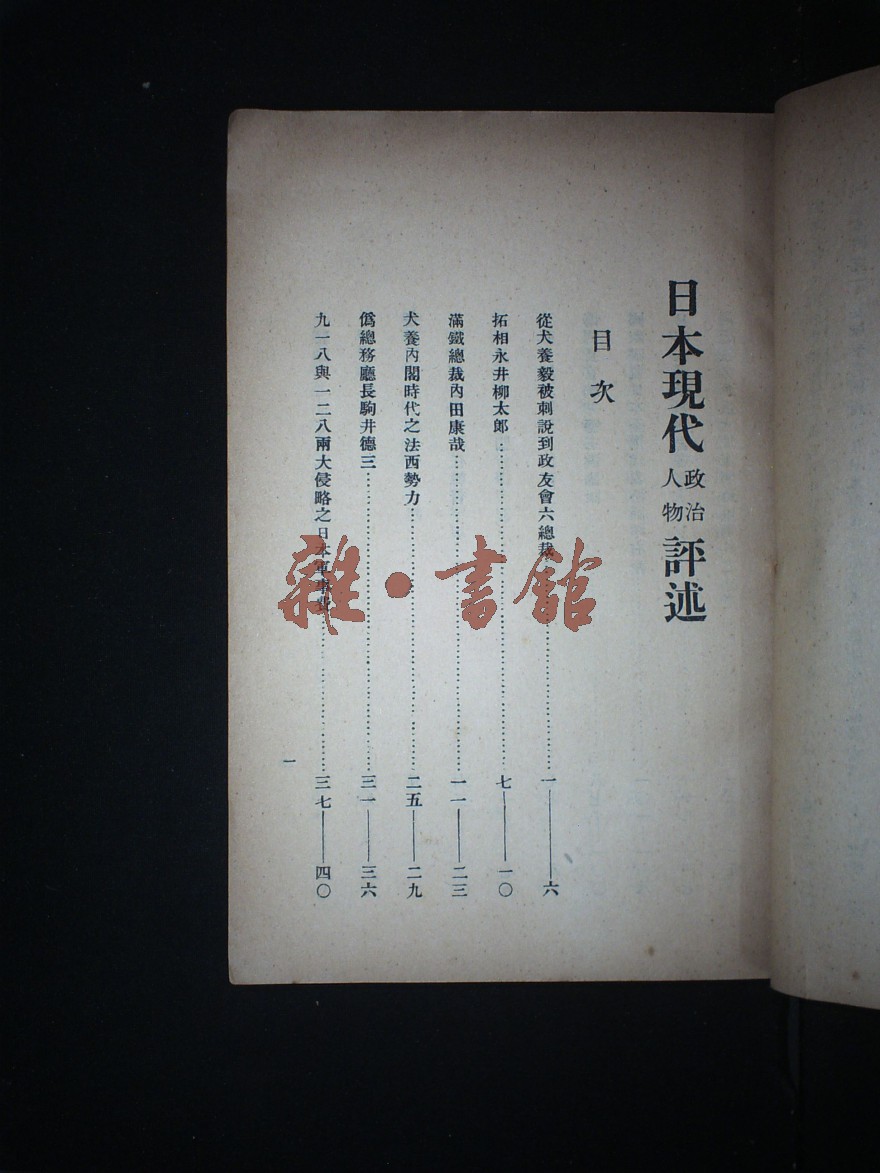 日本現代政治人物評述
目次
從犬養毅被刺說到政友會六總裁……一——六
拓相永井柳太郎……七——一〇
滿鐵總裁內田康哉……一一——二三
犬養內閣時代之法西勢力……二五——二九
僞總務廳長駒井德三……三一——三六
九一八與一二八兩大侵略之日本軍事費……三七——四〇
一
雜·書館